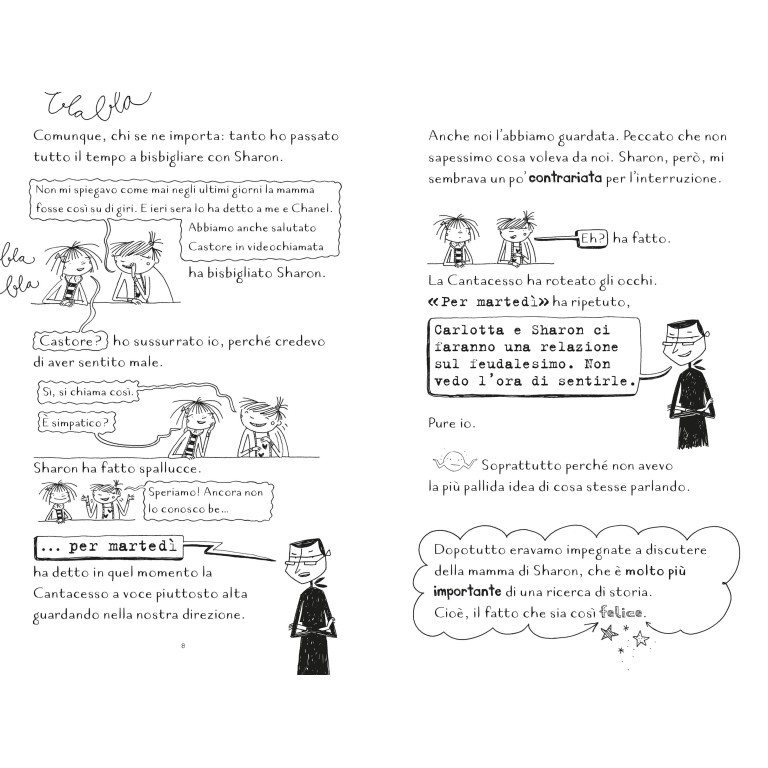 bla bla
Comunque, chi se ne importa: tanto ho passato
tutto il tempo a bisbigliare con Sharon.
Non mi spiegavo come mai negli ultimi giorni la mamma
fosse così su di giri. E ieri sera lo ha detto a me e Chanel.
Abbiamo anche salutato
Castore in videochiamata
bla
bla
ha bisbigliato Sharon.
Castore? ho sussurrato io, perché credevo
di aver sentito male.
Sì, si chiama così.
È simpatico?
Sharon ha fatto spallucce.
Speriamo! Ancora non
lo conosco be...
... per martedì
ha detto in quel momento la
Cantacesso a voce piuttosto alta
guardando nella nostra direzione.
8
Anche noi l'abbiamo guardata. Peccato che non
sapessimo cosa voleva da noi. Sharon, però, mi
sembrava un po' contrariata per l'interruzione.
Eh? ha fatto.
La Cantacesso ha roteato gli occhi.
«Per martedì» ha ripetuto,
Carlotta e Sharon ci
faranno una relazione
sul feudalesimo. Non
vedo l'ora di sentirle.
Pure io.
Soprattutto perché non avevo
la più pallida idea di cosa stesse parlando.
Dopotutto eravamo impegnate a discutere
della mamma di Sharon, che è molto più
importante di una ricerca di storia.
Cioè, il fatto che sia così felice.